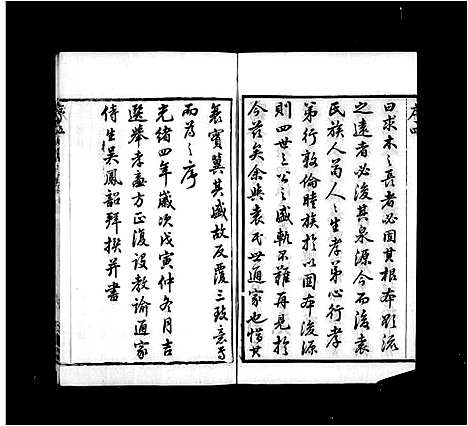 序四
曰求木之長者必固其根本欲流
之遠者必浚其泉源今而後袁
民族人苟人人生孝弟心行孝
弟行敦倫時族於以固本浚源
則四世三公之盛軌不難再見於
今茲矣余與袁氏世通家也惜其
衰實冀其盛故反覆三致意焉
而為之序
光緒四年歲次戊寅仲冬月吉
選舉孝廉方正復設教諭通家
侍生吳鳳韶拜撰并書